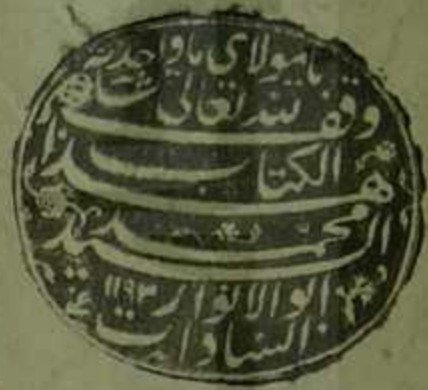 يا مولاي يا واحد
وقف لله تعالى
الكتاب
هذا
محمد
السيد
ابو الانوار ١١٩٣
السادات